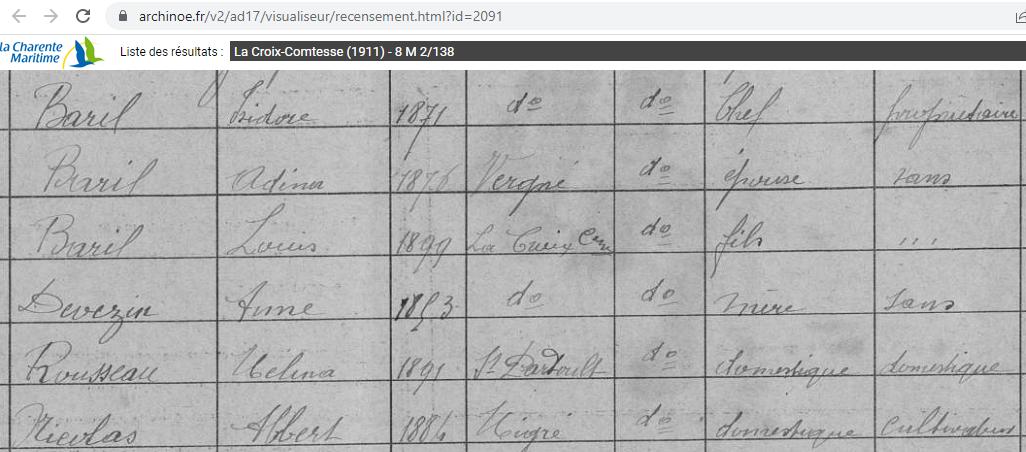 archinoe.fr/v2/ad17/visualiseur/recensement.html?id=2091
la Charente
Maritime
Liste des résultats : La Croix-Comtesse (1911) - 8 M 2/138
Baril Isidore 1871 do do Chef propriétaire
Baril Adina 1876 Vergné do épouse sans
Baril Louis 1899 La Croix Com do fils ,,,
Devezin Anne 1853 do do mère sans
Rousseau Mélina 1891 do domestique domestique
Nicolas Albert 1884 Migré do domestique cultivateur